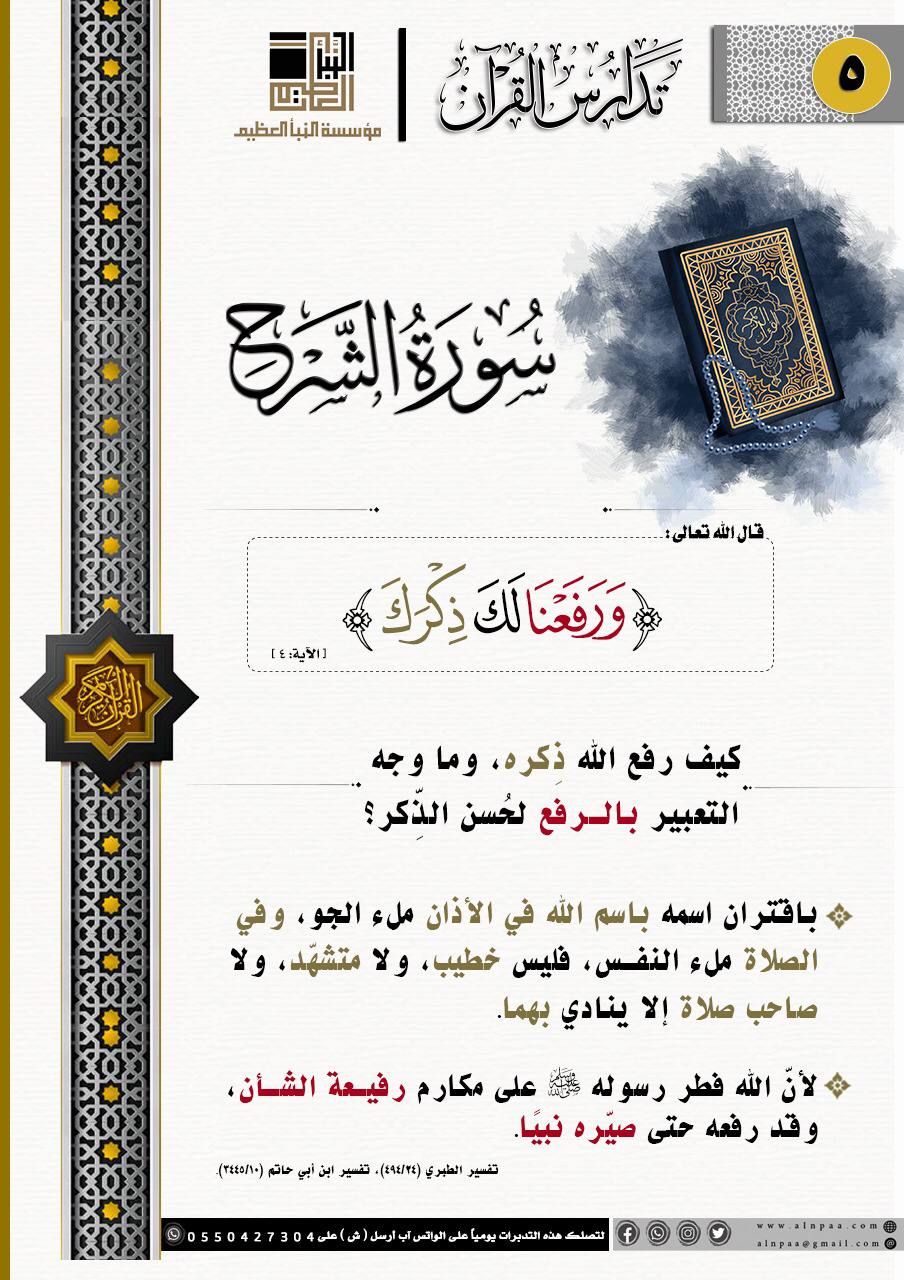 ٥
تَدَارُس القُرْآن
النبأ العظيم
مؤسسة النبأ العظيم
سُورَةُ الشَّرْحِ
قال الله تعالى:
﴿وَرَفَعْنَا لَكَ ذِكْرَكَ﴾
[الآية: ٤]
القرآن الكريم
كيف رفع الله ذِكره، وما وجه
التعبير بالـرفع لحُسن الذِّكر؟
باقتران اسمه باسم الله في الأذان ملء الجو، وفي
الصلاة ملء النفـس، فليس خطيب، ولا متشهّد، ولا
صاحب صلاة إلا ينادي بهما.
لأنّ الله فطر رسوله ﷺ على مكارم رفيـعة الشـأن،
وقد رفعه حتى صيّره نبيًا.
تفسير الطبري (٤٩٤/٢٤)، تفسير ابن أبي حاتم (٣٤٤٥/١٠).
لتصلك هذه التدبرات يومياً على الواتس آب أرسل ( ش ) على 0550427304
www.alnpaa.com
alnpaa@gmail.com